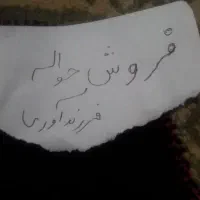 فروش حواله
فرزندآوری